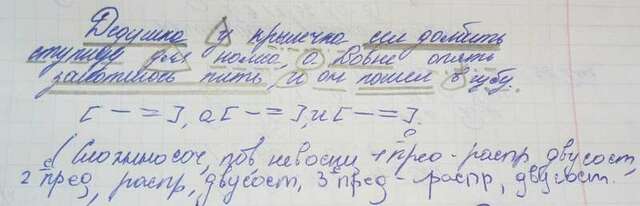 Дедушка у крылечка сел долбить
ступицу для колеса, а Вовке опять
захотелось пить, и он пошел в избу.
[ — = ], а [ — = ], и [ — = ].
(Сложносоч, пов невоскл, 1 пред - распр двусост
2 пред, распр, двусост, 3 пред - распр, двусост.